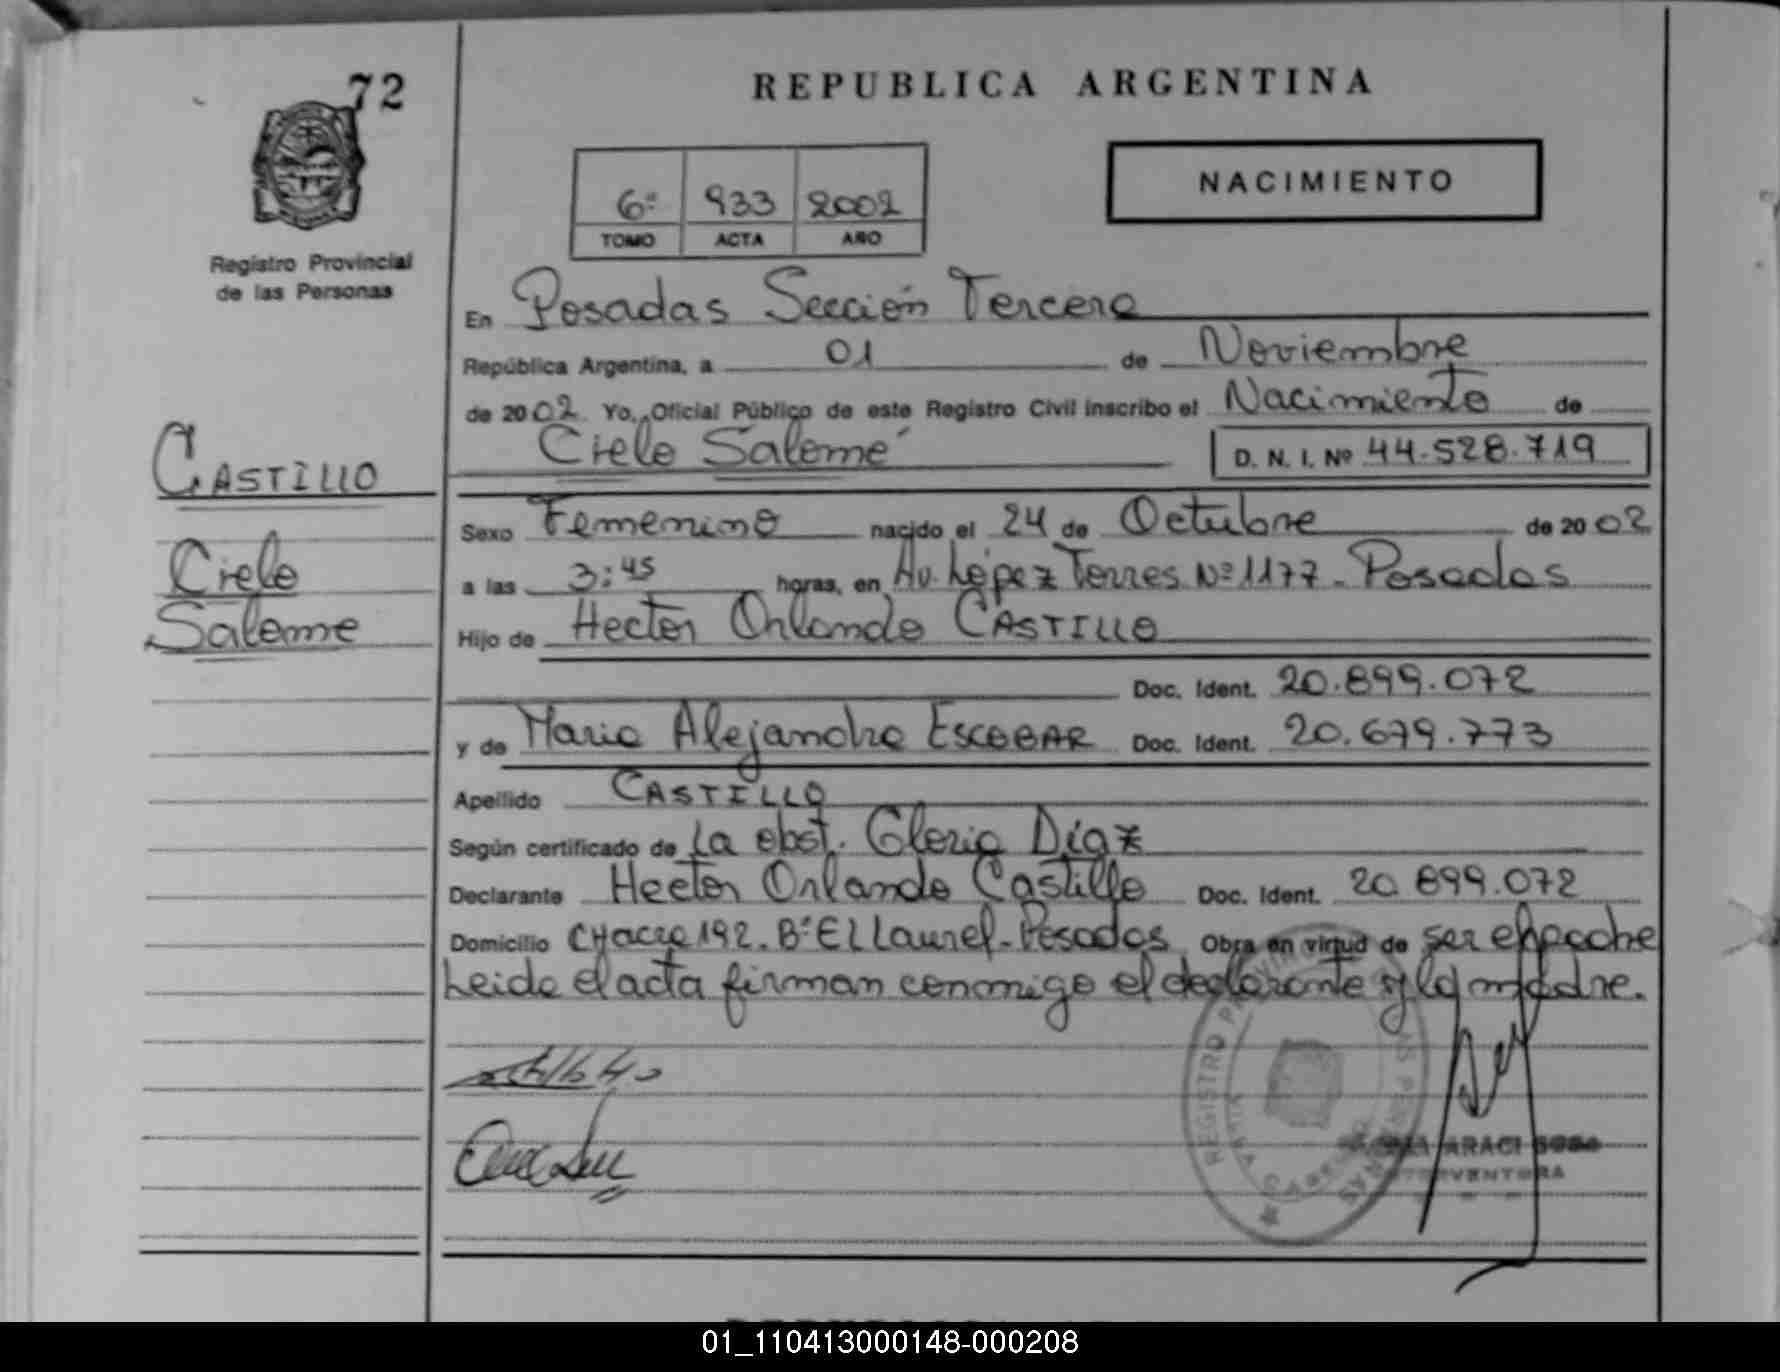 72
REPUBLICA ARGENTINA
NACIMIENTO
6º 933 2002
TOMO ACTA AÑO
Registro Provincial
de las Personas
En Posadas Sección Tercera
República Argentina, a 01 de Noviembre
de 2002. Yo, Oficial Público de este Registro Civil inscribo el Nacimiento de
Cielo Salomé D. N. I. Nº 44.528.719
CASTILLO
Cielo
Salome
Sexo Femenino nacido el 24 de Octubre de 2002
a las 3:45 horas, en Av. López Torres Nº 1177 - Posadas
Hijo de Hector Orlando CASTILLO
Doc. Ident. 20.899.072
y de Maria Alejandra ESCOBAR Doc. Ident. 20.679.773
Apellido CASTILLO
Según certificado de La obst. Gloria Díaz
Declarante Hector Orlando Castillo Doc. Ident. 20.899.072
Domicilio CHacra 192. Bº El Laurel - Posadas Obra en virtud de ser el padre
Leida el acta firman conmigo el declarante y la madre.
REGISTRO PROVINCIAL DE LAS PERSONAS
ARACI SOSA
INTERVENTORA
01_110413000148-000208